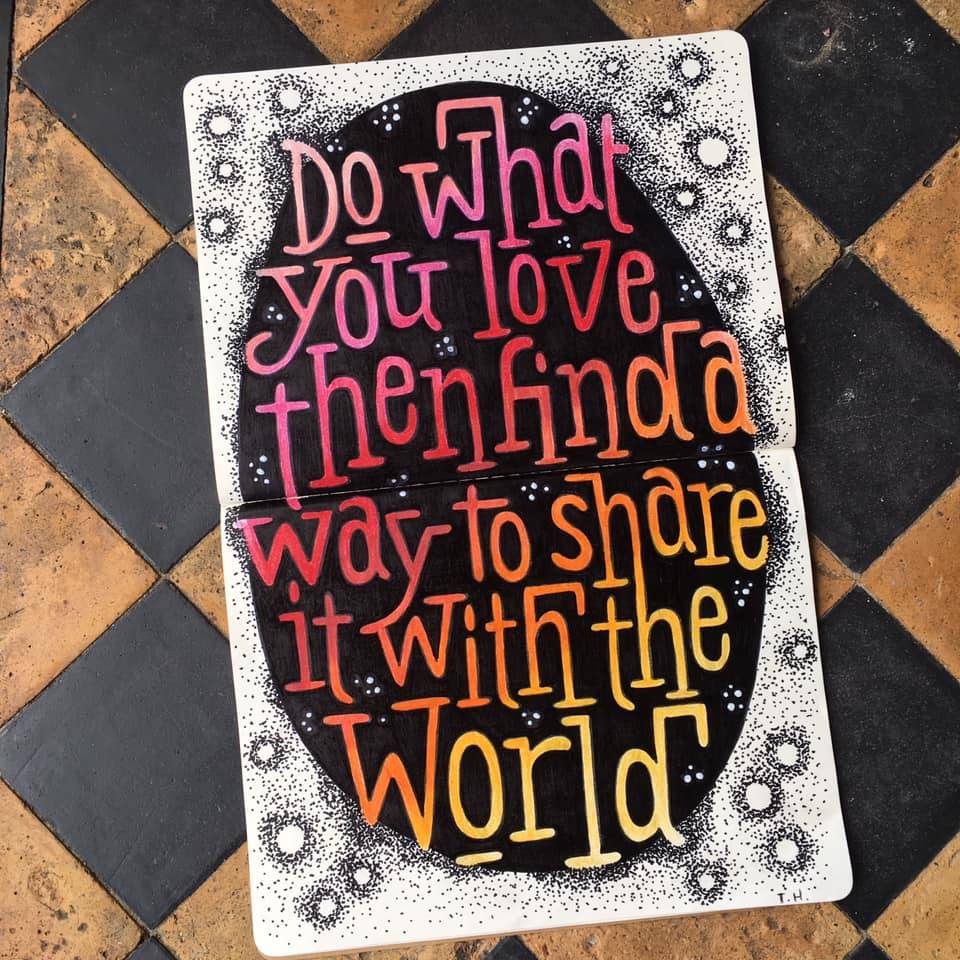 Do what
you love
then find a
way to share
it with the
World
T.H.